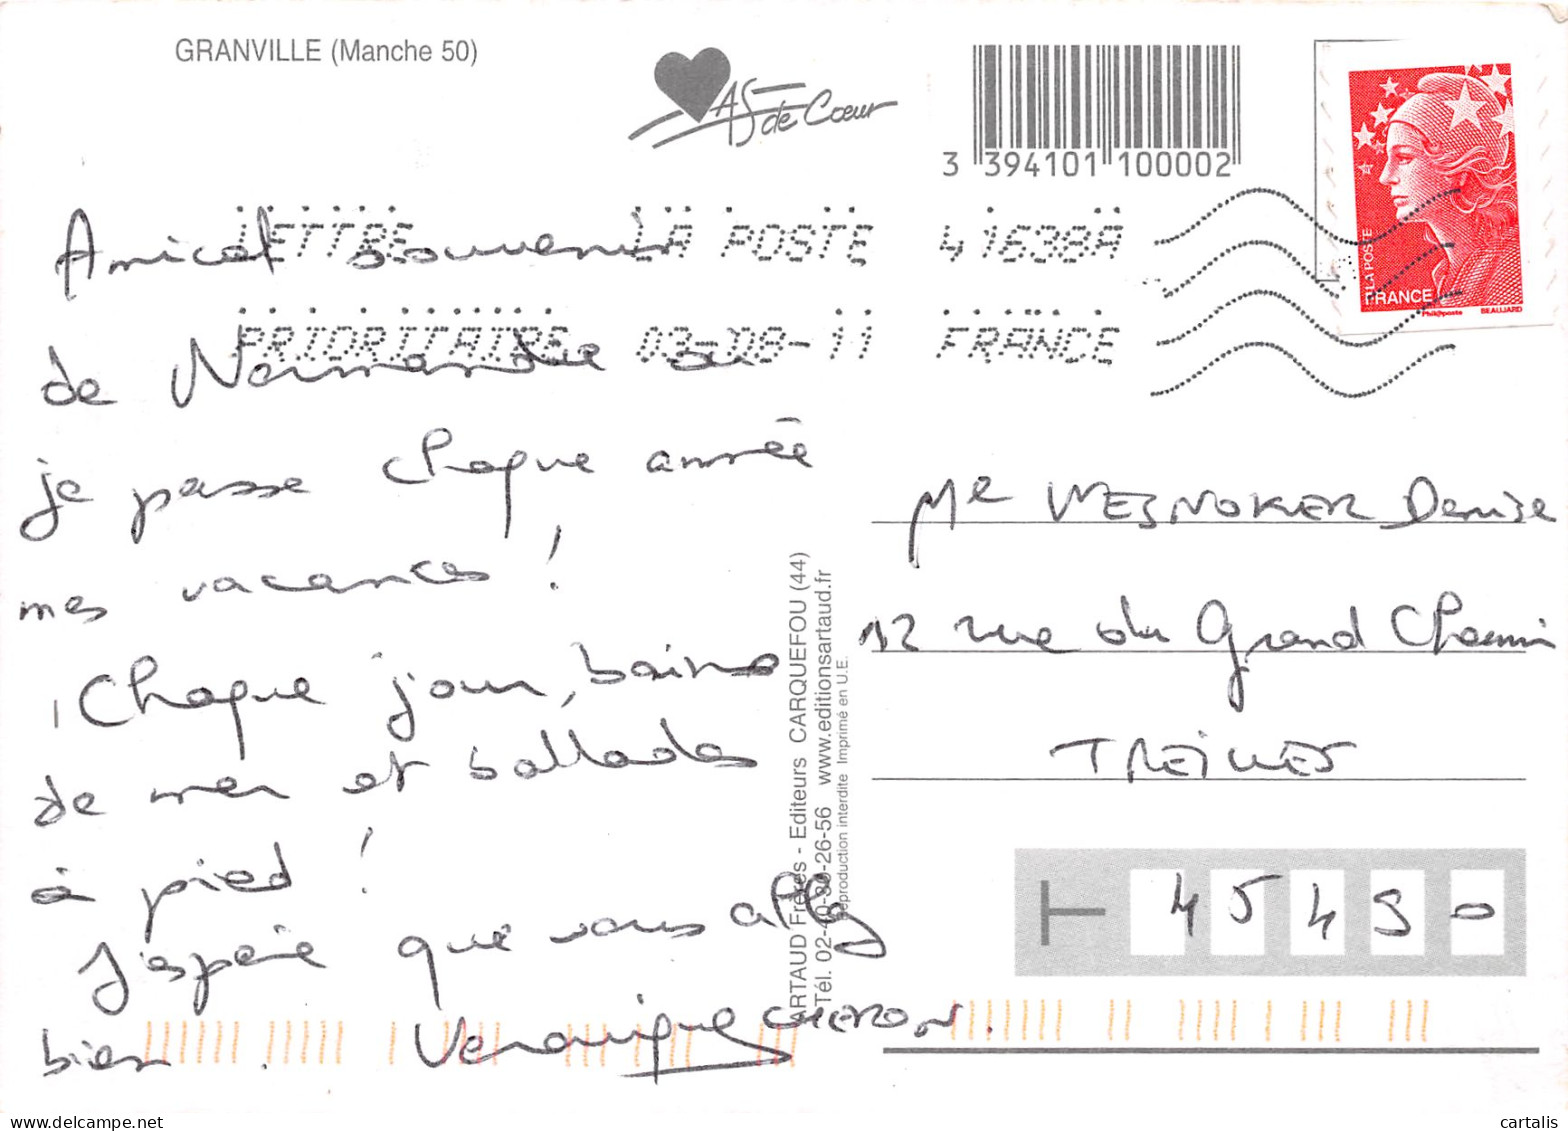 GRANVILLE (Manche 50)
AS de Cœur
3 394101 100002
LA POSTE
FRANCE
Phil@poste
BEAUJARD
LETTRE LA POSTE 41638A
PRIORITAIRE 03-08-11 FRANCE
Amical souvenir
de Normandie où
je passe chaque année
mes vacances !
Chaque jour, bains
de mer et ballades
à pied !
J'espère que vous allez
bien. Véronique CHERON.
ARTAUD Frères - Editeurs CARQUEFOU (44)
Tél. 02-40-30-26-56 www.editionsartaud.fr
Reproduction interdite Imprimé en U.E.
Me WESNOKER Denise
12 rue du Grand Chemin
TREILLES
45490
cartalis